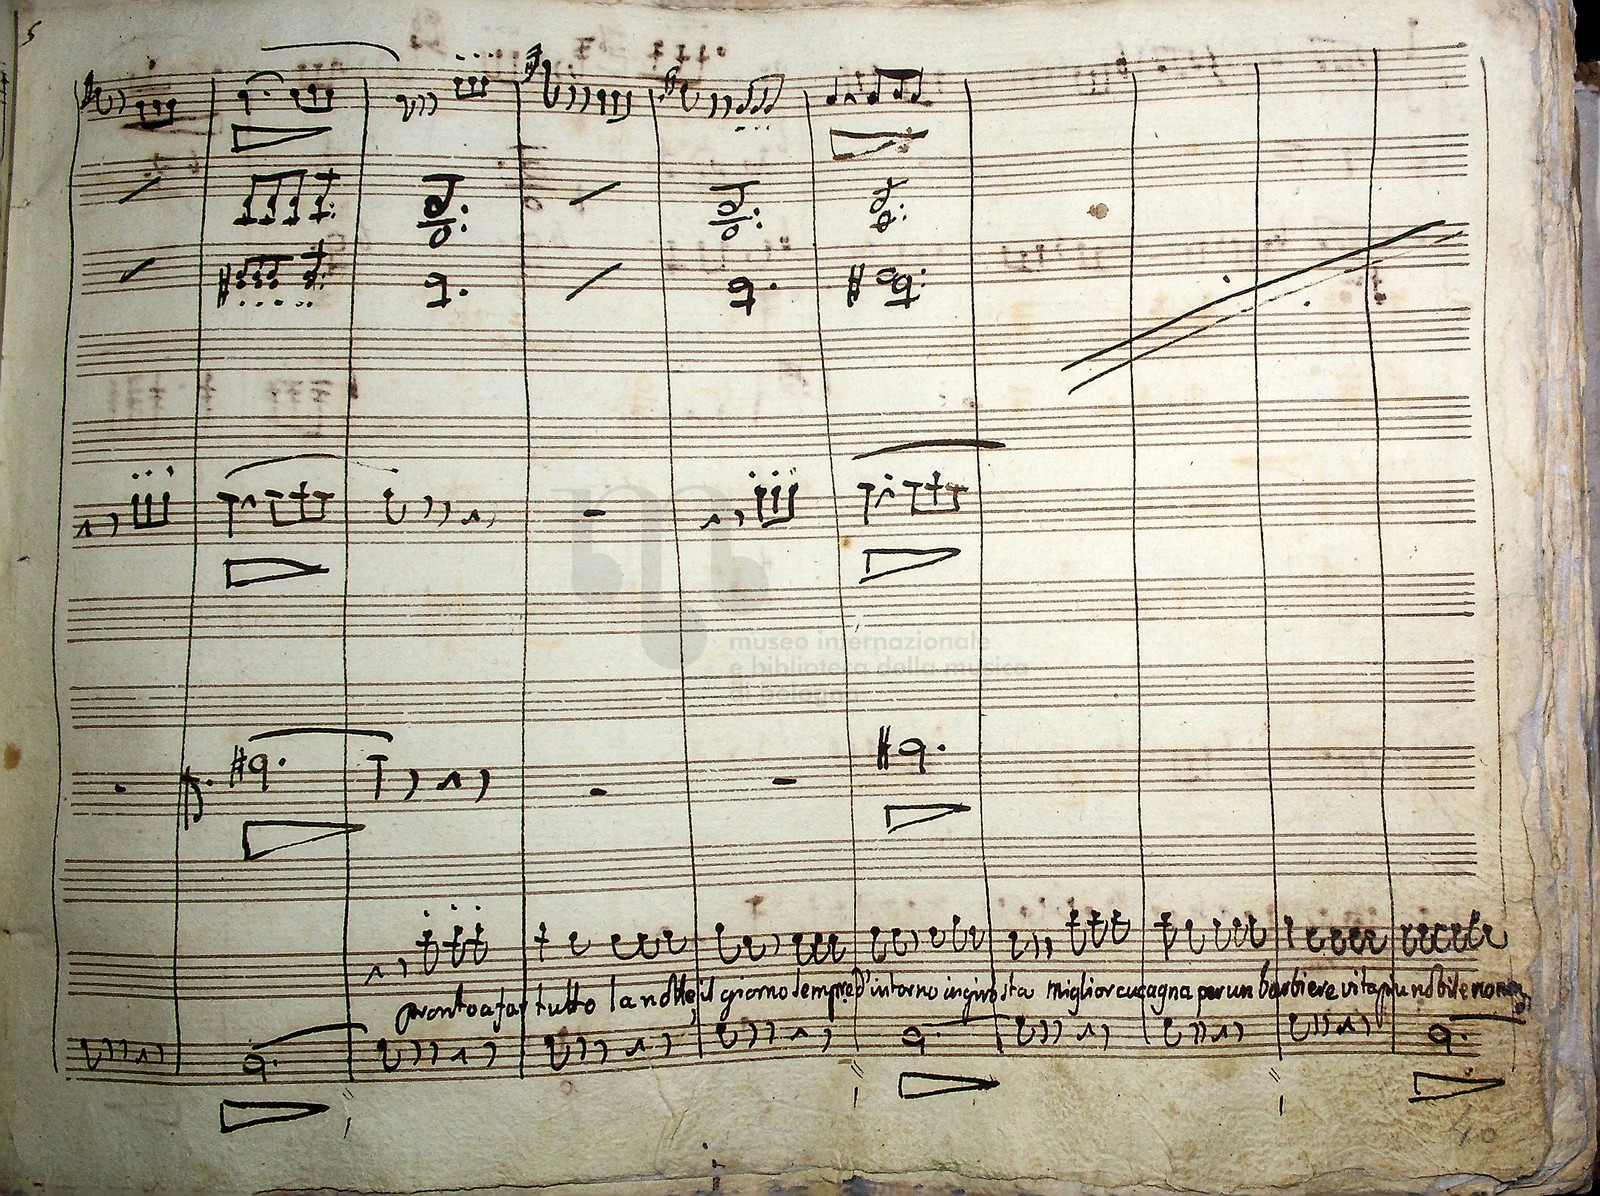 5
museo internazionale
e biblioteca della musica
di bologna
pronto a far tutto la notte, il giorno sempre d'intorno in giro sta miglior cucagna per un barbiere vita più nobile no non
40